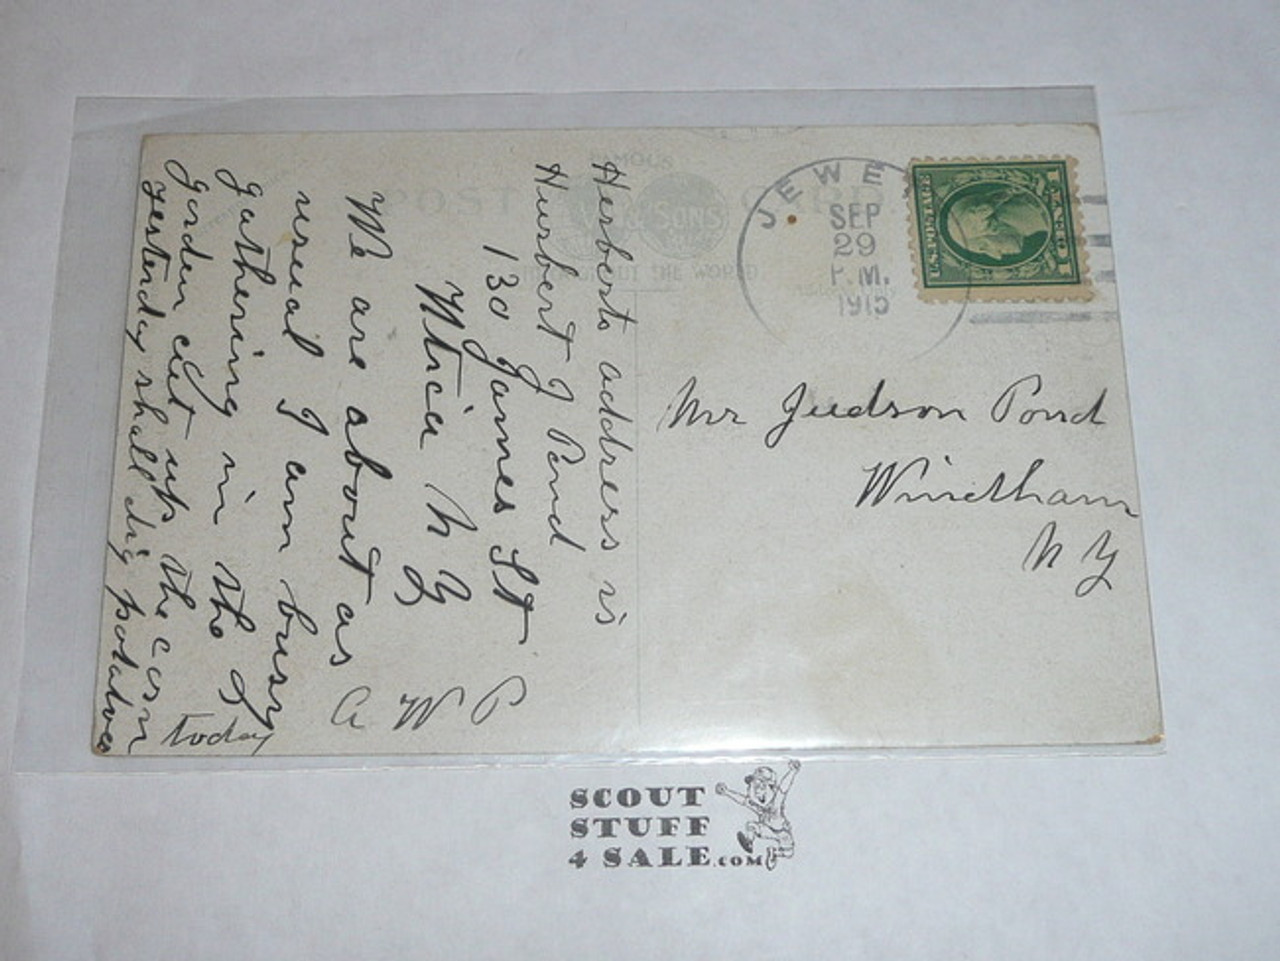 Herberts address is
Hurbert J Pond
130 James St
Utica N Y
We are about as
usual I am busy
gathering in the g
gorden cut up the corn
yesterday shall dig potatoes
today
A W P
POST CARD
FAMOUS
& SONS
THROUGHOUT THE WORLD
JEWE
SEP
29
P.M.
1915
U.S. POSTAGE
1 CENT 1
Mr Judson Pond
Windham
N Y
SCOUT
STUFF
4 SALE.COM